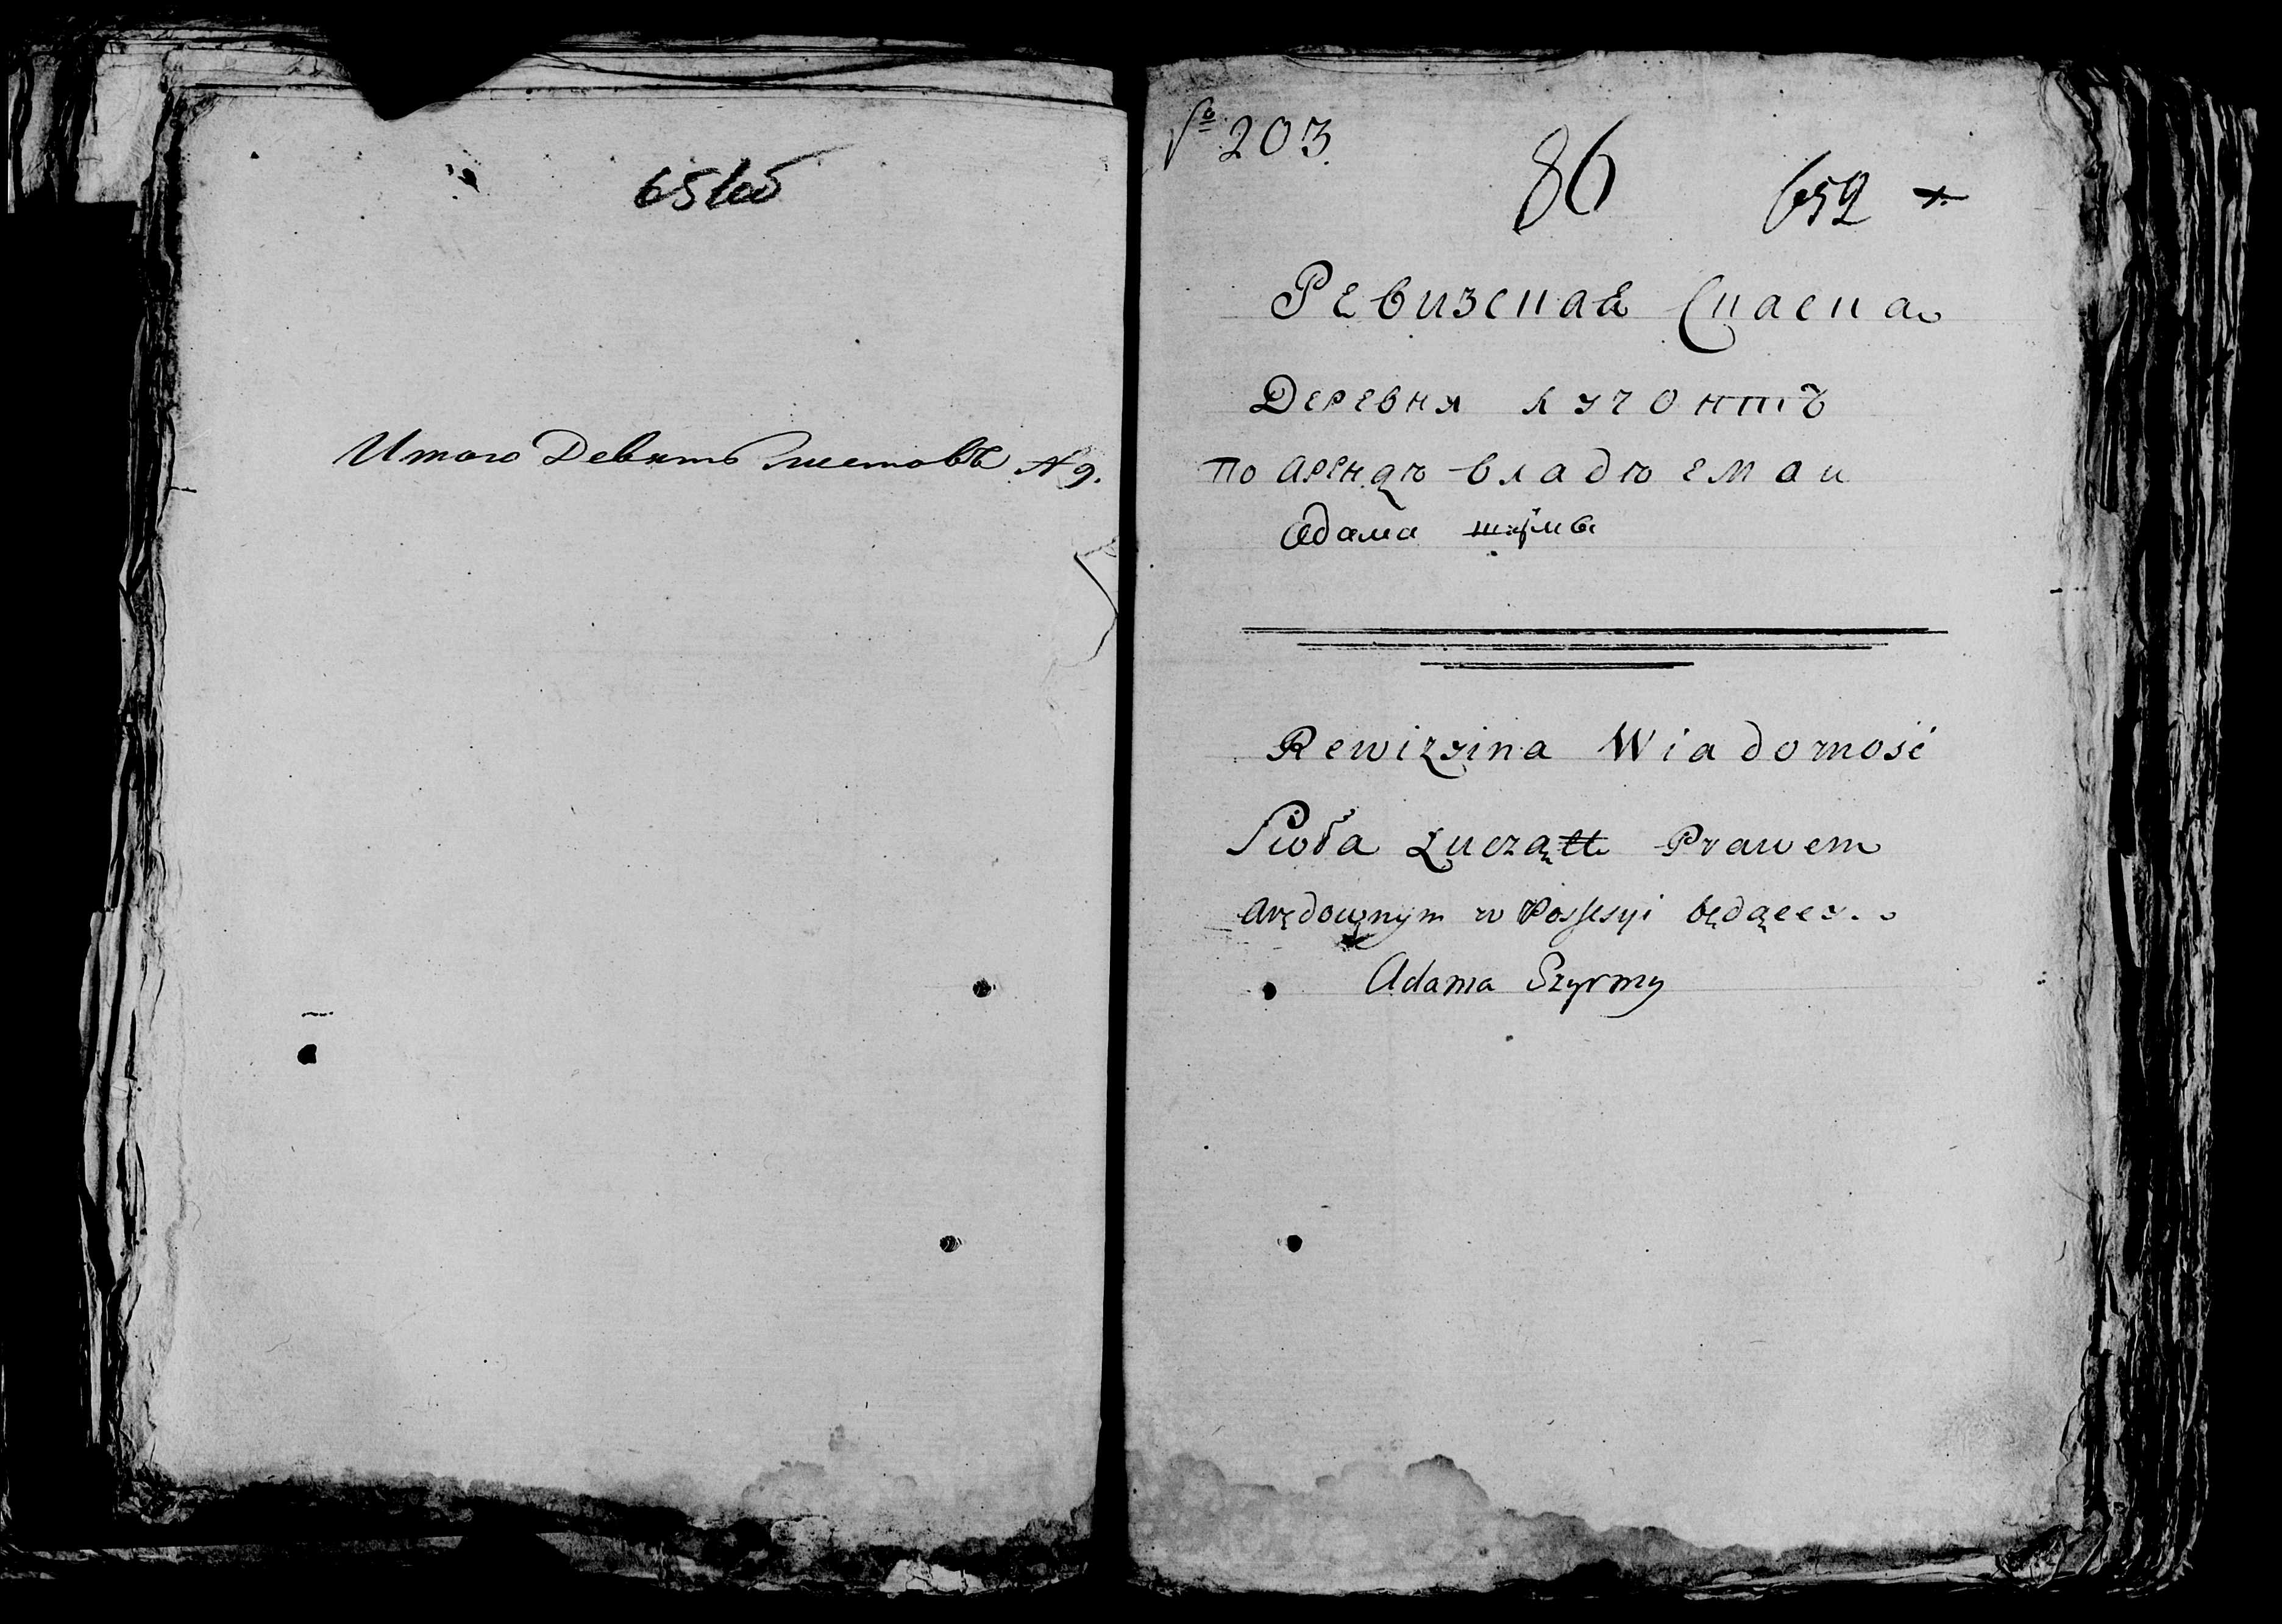 651об
Итого Девять листовъ № 9.
№ 203.
86
652
Ревизская Скаска
Деревня Лучонтъ
по Арендѣ владѣемаи
Адама
Rewizyina Wiadomość
Sioła Łucząt Prawem
Arędownym w Possesyi będącey
Adama Szyrmy